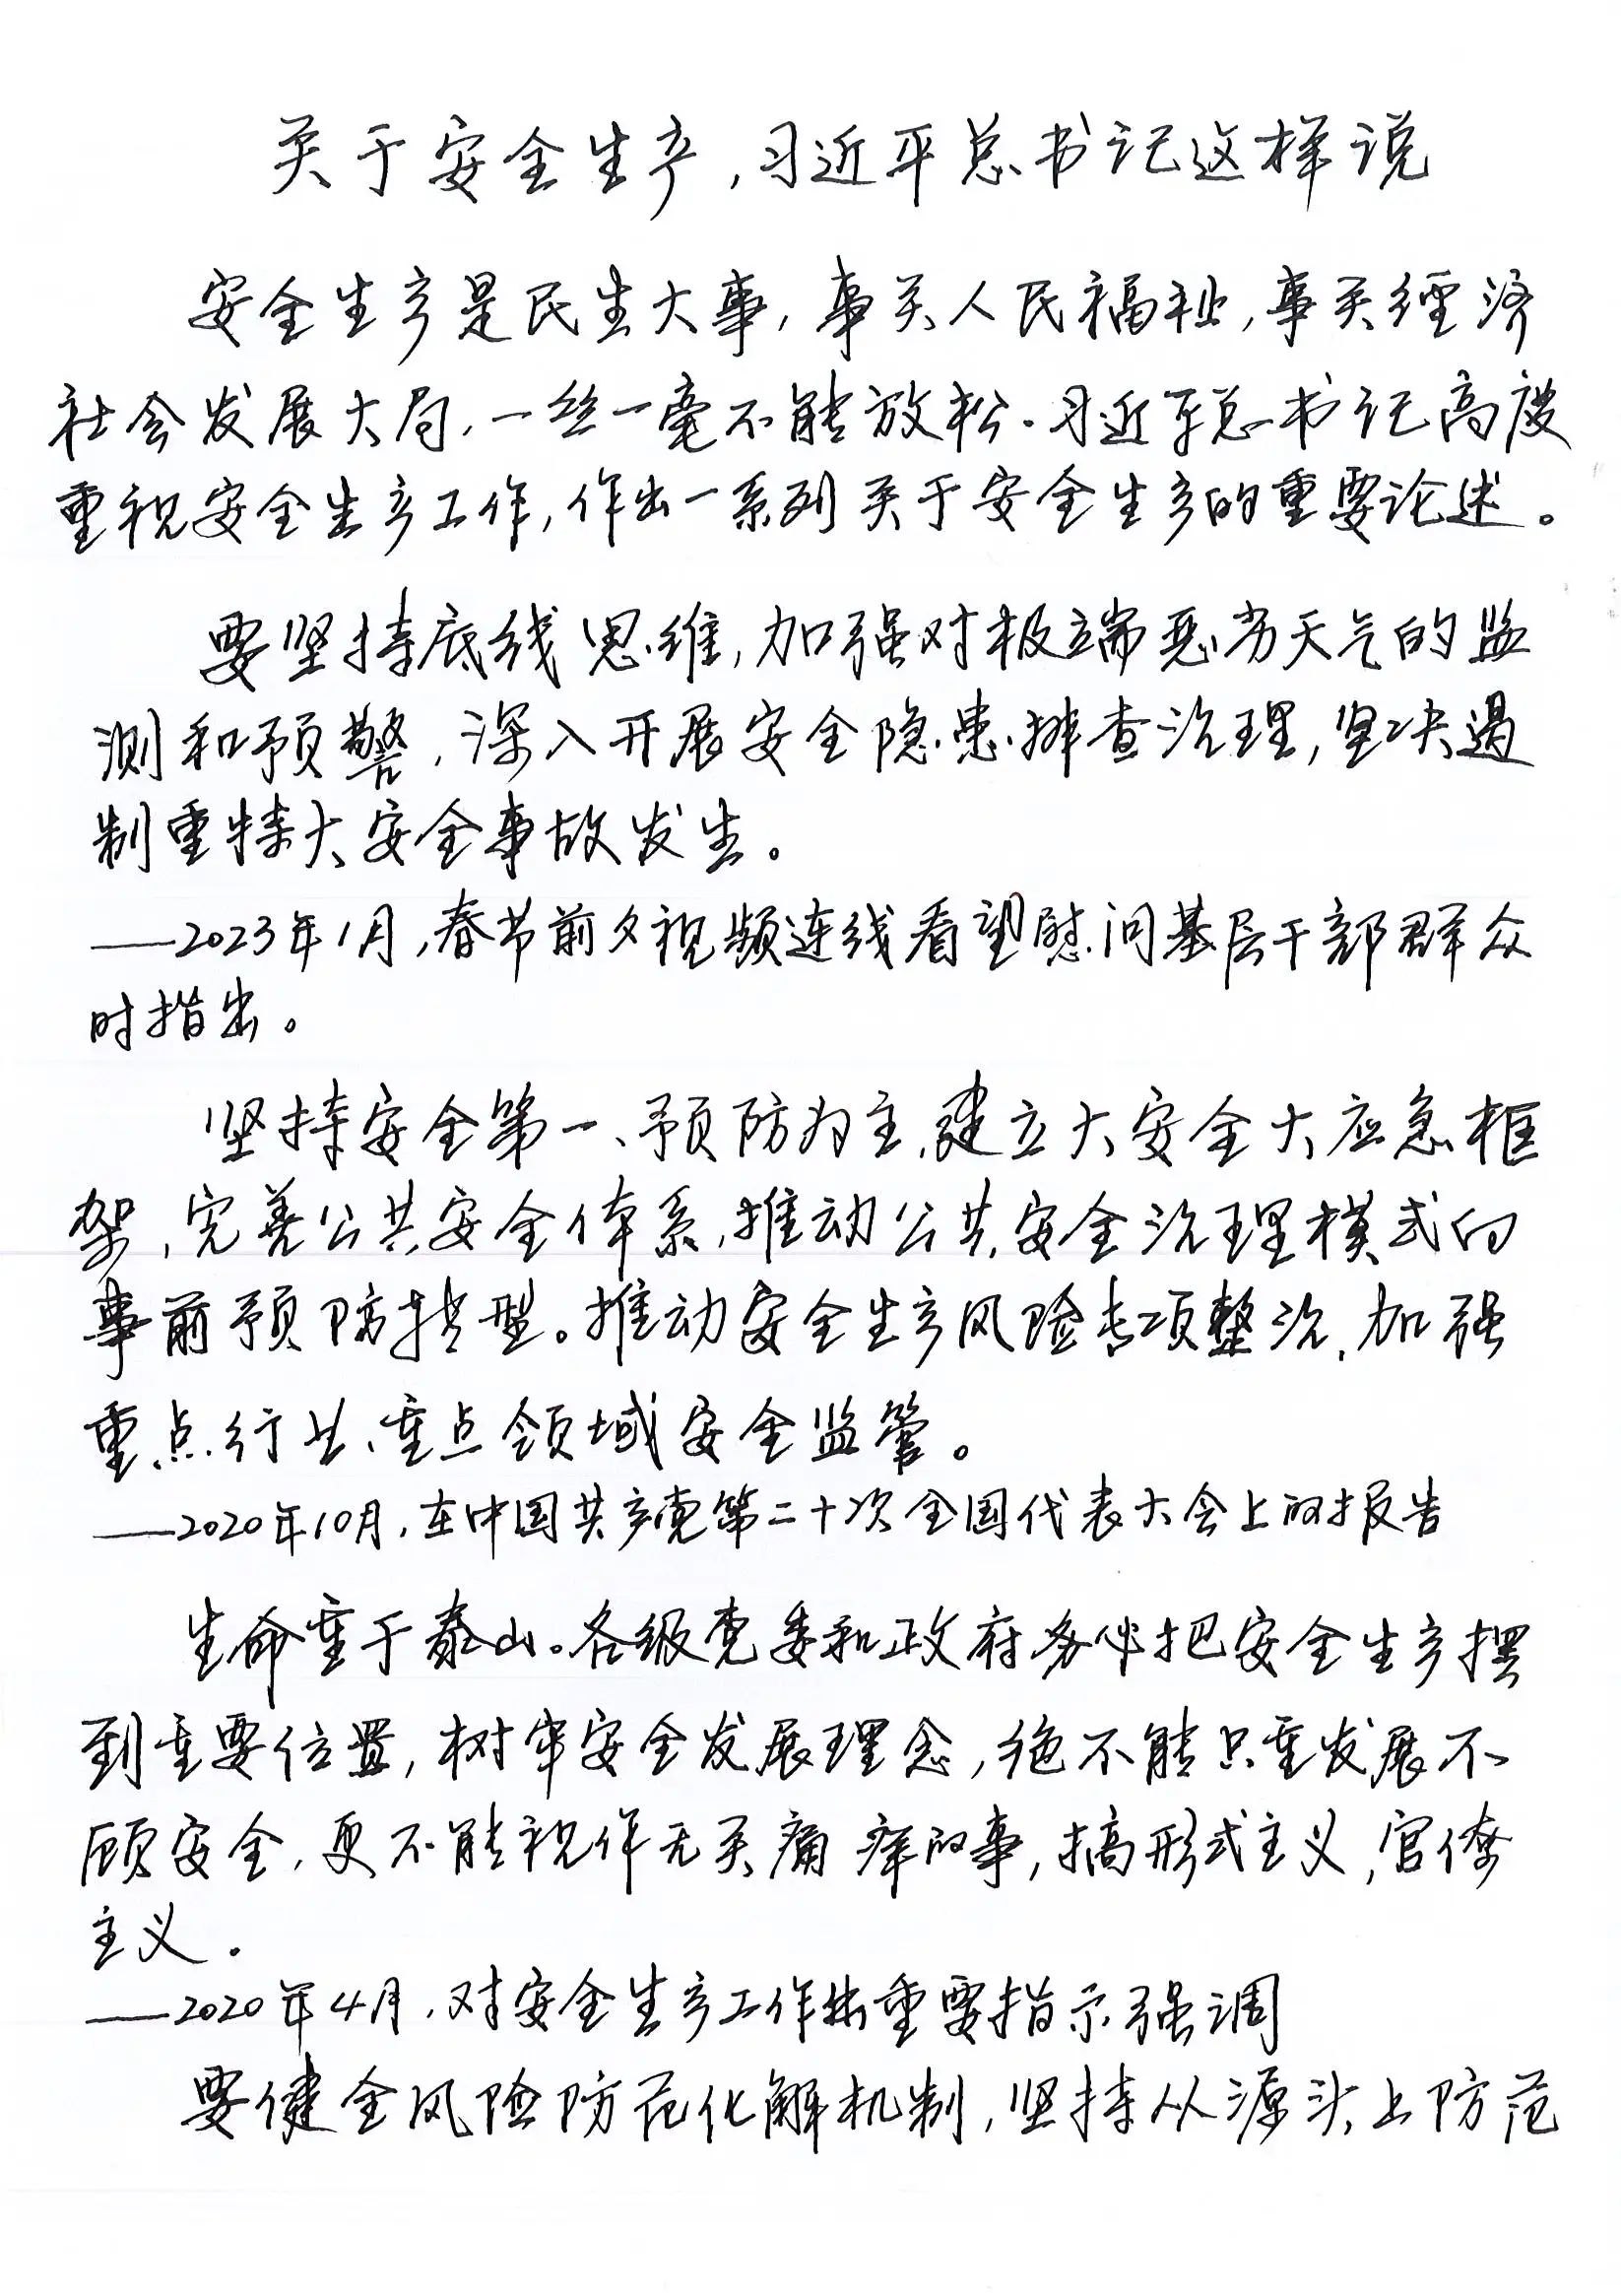 关于安全生产,习近平总书记这样说
安全生产是民生大事,事关人民福祉,事关经济
社会发展大局,一丝一毫不能放松.习近平总书记高度
重视安全生产工作,作出一系列关于安全生产的重要论述。
要坚持底线思维,加强对极端恶劣天气的监
测和预警,深入开展安全隐患排查治理,坚决遏
制重特大安全事故发生。
——2023年1月,春节前夕视频连线看望慰问基层干部群众
时指出。
坚持安全第一、预防为主,建立大安全大应急框
架,完善公共安全体系,推动公共安全治理模式向
事前预防转型。推动安全生产风险专项整治,加强
重点行业、重点领域安全监管。
——2020年10月,在中国共产党第二十次全国代表大会上的报告
生命重于泰山。各级党委和政府务必把安全生产摆
到重要位置,树牢安全发展理念,绝不能只重发展不
顾安全,更不能视作无关痛痒的事,搞形式主义,官僚
主义.
——2020年4月,对安全生产工作作出重要指示强调
要健全风险防范化解机制,坚持从源头上防范